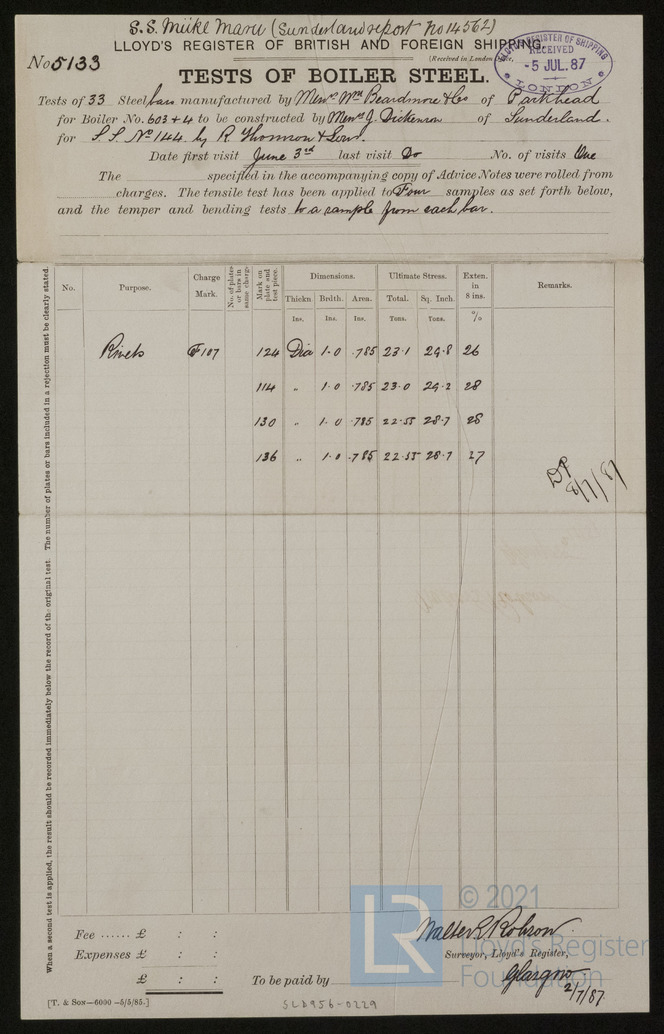 S.S. Miike Maru (Sunderland report No 14562)
LLOYD'S REGISTER OF BRITISH AND FOREIGN SHIPPING.
No 5133
(Received in London Office,
LLOYD'S REGISTER OF SHIPPING
RECEIVED
-5 JUL.87
LONDON
TESTS OF BOILER STEEL.
Tests of 33 Steel bars manufactured by Messrs Wm Beardmore & Co of Parkhead
for Boiler No. 603 + 4 to be constructed by Messrs J. Dickinson of Sunderland.
for S.S. No 144 by R Thomson & Sons.
Date first visit June 3rd last visit Do No. of visits One
The specified in the accompanying copy of Advice Notes were rolled from
charges. The tensile test has been applied to Four samples as set forth below,
and the temper and bending tests to a sample from each bar.
When a second test is applied, the result should be recorded immediately below the record of the original test. The number of plates or bars included in a rejection must be clearly stated.
No. Purpose. Charge Mark. No. of plates or bars in same charge Mark on plate and test piece. Dimensions. Ultimate Stress. Exten. in 8 ins. Remarks.
Thickn Brdth. Area. Total. Sq. Inch.
Ins. Ins. Ins. Tons. Tons. %
Rivets F107 124 Dia 1.0 .785 23.1 29.8 26
114 " 1.0 .785 23.0 29.2 28
130 " 1.0 .785 22.55 28.7 28
136 " 1.0 .785 22.55 28.7 27
8/7/87
Fee ...... £ : :
Expenses £ : :
£ : :
To be paid by
Walter L Robson
Surveyor, Lloyd's Register,
Glasgow
2/7/87.
[T. & Son—6000 —5/5/85.]
SLD956-0229
LR
© 2021
Lloyd's Register
Foundation